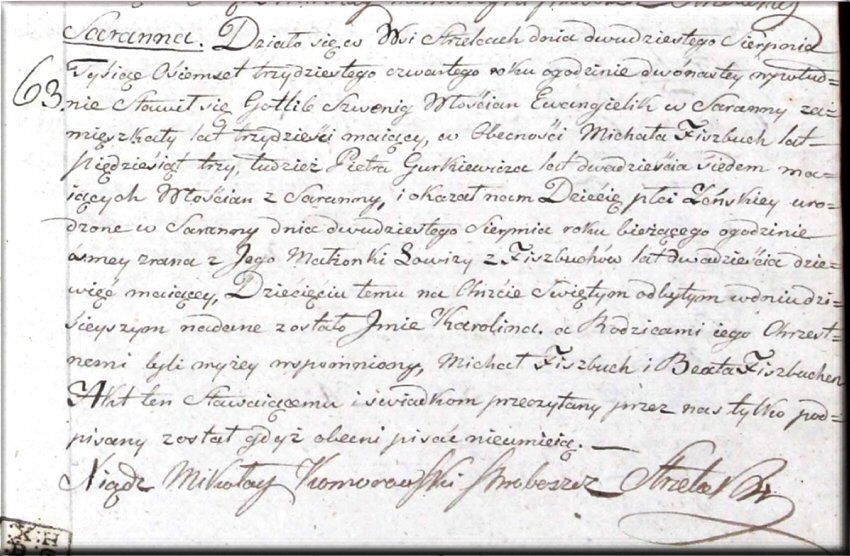 Saranna. Działo się w Wsi Strzelcach dnia dwudziestego Sierpnia
63. Tysiąc Ośiemset trzydziestego czwartego roku ogodzinie dwónastey wpołud=
nie Stawił się Gotlib Szwenig Włościan Ewangielik w Saranny za=
mięszkały lat trzydzieści maiący, w Obecności Michała Fiszbuch lat
piędziesiąt trzy, tudzież Pietra Gurkiewicza lat dwadzieścia siedem ma=
iących Włościan z Saranny, i okazał nam Dziecię płci Zeńskiey uro=
dzone w Saranny dnia dwudziestego Sierpnia roku bieżącego ogodzinie
ósmey zrana z Jego Małżonki Lowizy z Fiszbuchów lat dwadzieścia dzie=
więć maiącey, Dziecięciu temu na Chrzcie Swiętym odbytym wdniu dzi=
sieyszym nadane zostało Jmie Karolina. a Rodzicami iego Chrzest=
nemi byli wyżey wspomniony, Michał Fiszbuch i Beata Fiszbuchen
Akt ten Stawaiącemu i swiadkom przeczytany przez nas tylko pod=
pisany został gdyż obecni pisać nieumieią. —
Xiądz Mikołay Komorowski Proboszcz Strzelec
K H